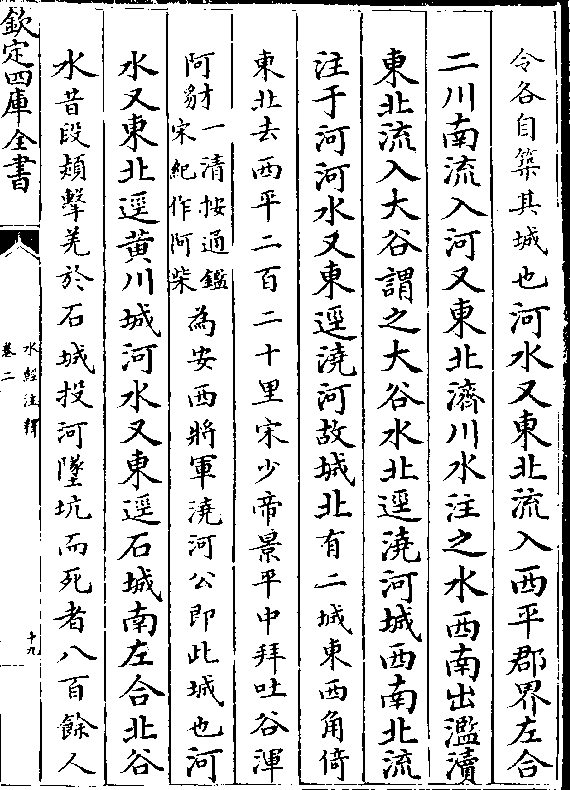 令各自築其城也河水又東北流入西平郡界左合
二川南流入河又東北濟川水注之水西南出濫瀆
東北流入大谷謂之大谷水北逕澆河城西南北流
注于河河水又東逕澆河故城北有二城東西角倚
東北去西平二百二十里宋少帝景平中拜吐谷渾
阿豺一清按通鑑宋紀作阿柴為安西將軍澆河公即此城也河
水又東北逕黄川城河水又東逕石城南左合北谷
水昔段熲擊羌於石城投河墜坑而死者八百餘人
欽定四庫全書
水經注釋
卷二
十九